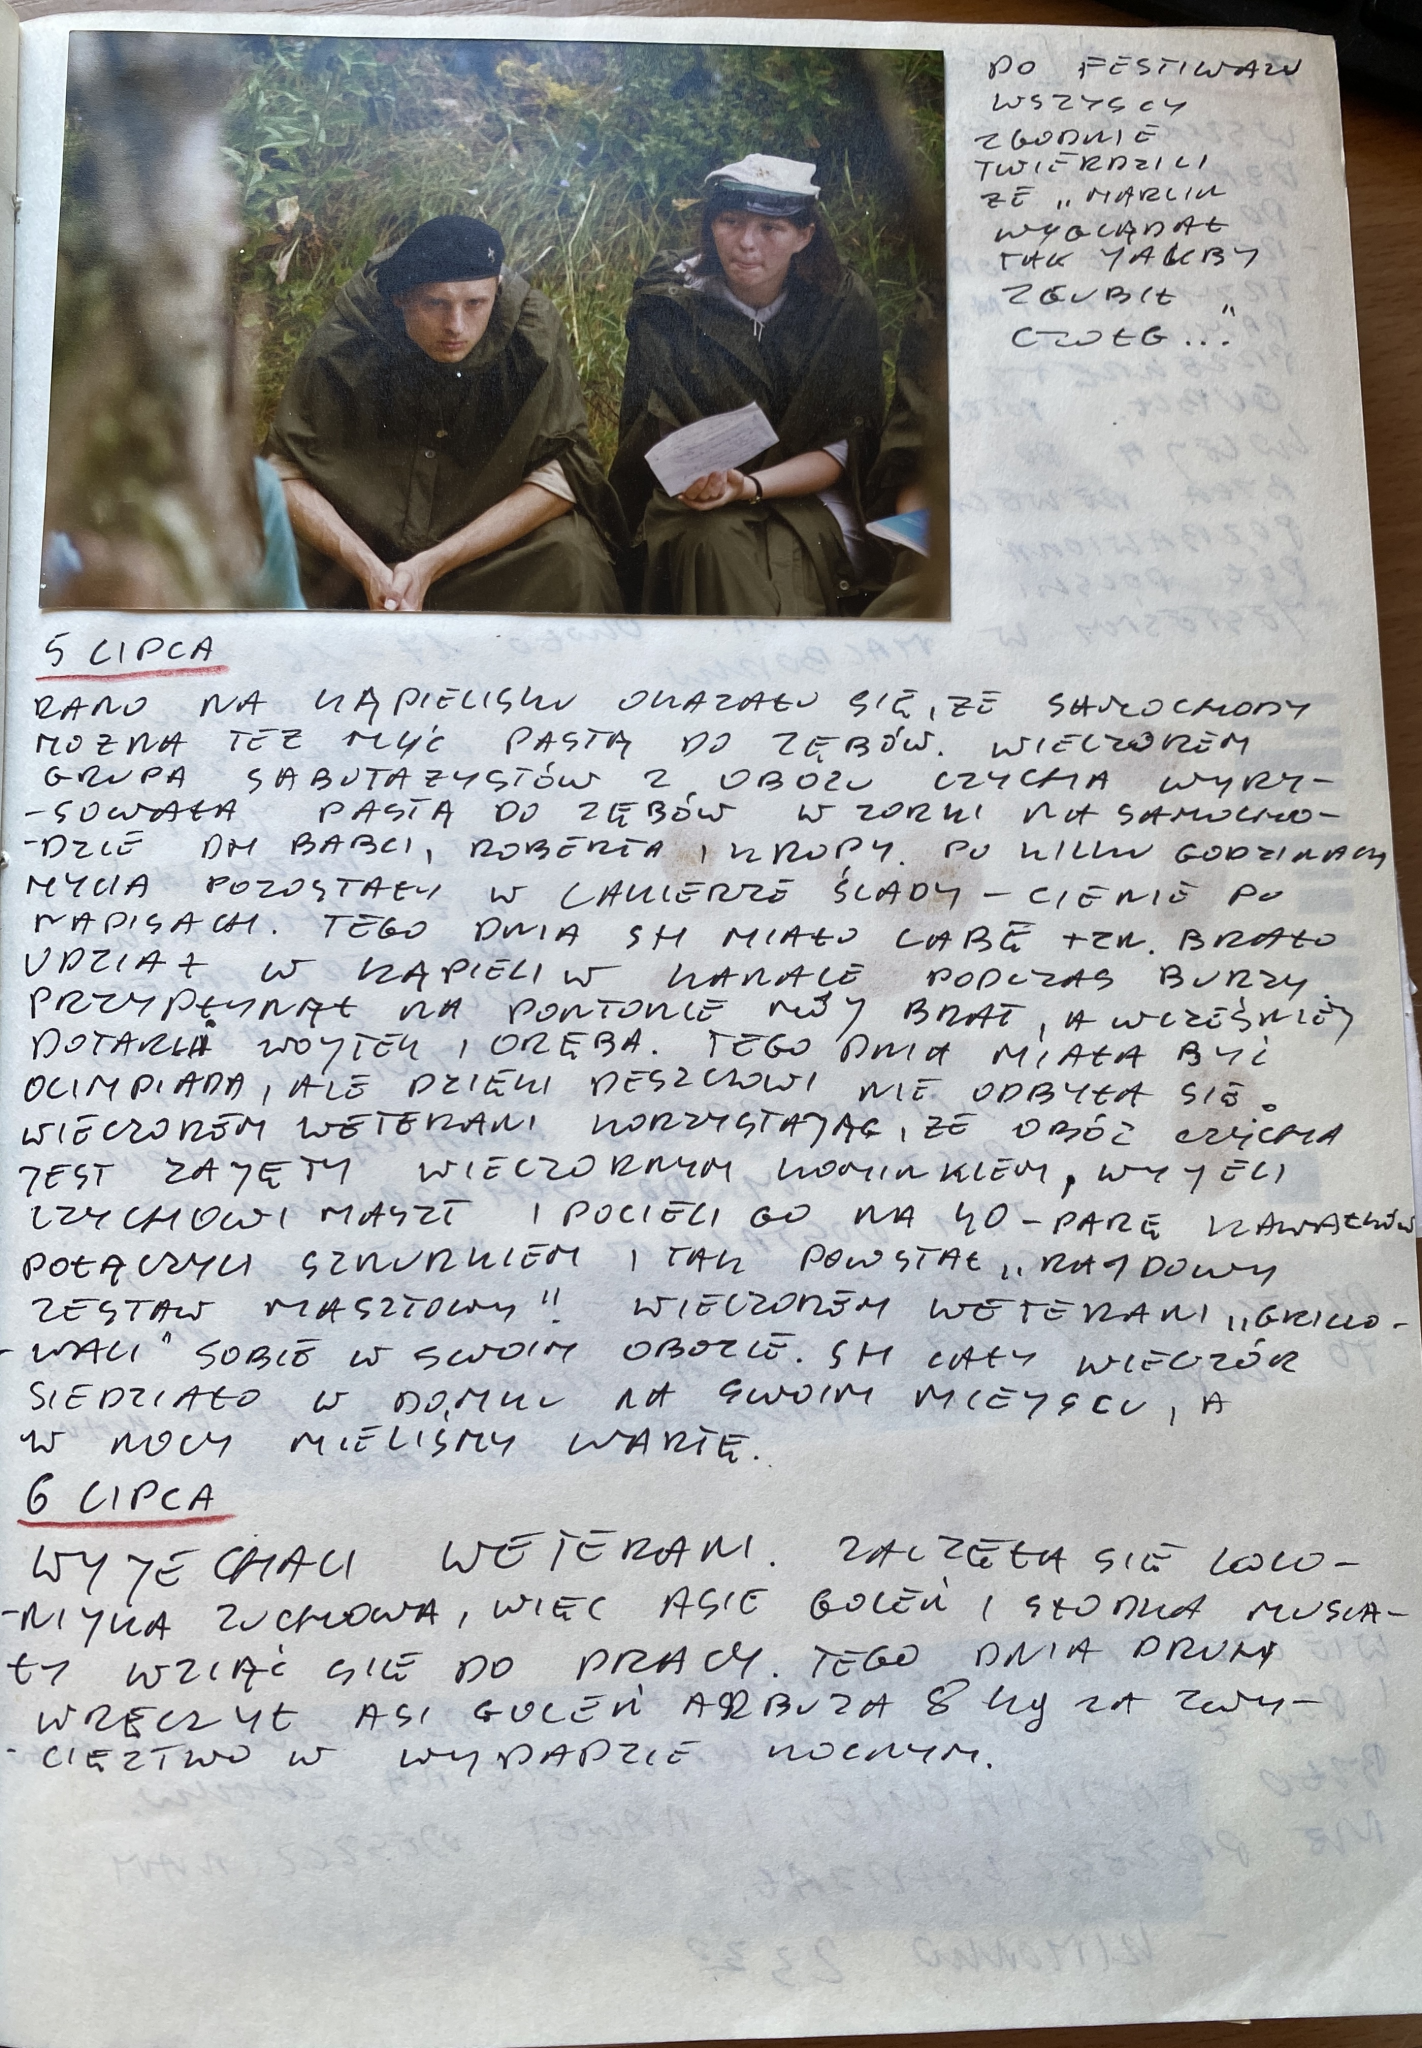 DO FESTIWALU
WSZYSCY
ZGODNIE
TWIERDZILI
ZE „MARCIN
WYGLĄDAŁ
TAK JAKBY
ZGUBIŁ
CZOŁG..."
5 LIPCA
RANO NA KĄPIELISKU OKAZAŁO SIĘ, ZE SAMOCHODY
MOZNA TEZ MYĆ PASTĄ DO ZĘBÓW. WIECZOREM
GRUPA SABOTAZYSTÓW Z OBOZU CZYCHA WYRY-
-SOWAŁA PASTĄ DO ZĘBÓW WZORKI NA SAMOCHO-
-DZIE DH BABCI, ROBERTA I KROPY. PO KILKU GODZINACH
MYCIA POZOSTAŁY W LAKIERZE ŚLADY - CIENIE PO
NAPISACH. TEGO DNIA SH MIAŁO LABĘ TZN. BRAŁO
UDZIAŁ W KĄPIELI W KANALE PODCZAS BURZY
PRZYPŁYNĄŁ NA PONTONIE MÓJ BRAT, A WCZEŚNIEJ
DOTARLI WOJTEK I ORĘBA. TEGO DNIA MIAŁA BYĆ
OLIMPIADA, ALE DZIĘKI DESZCZOWI NIE ODBYŁA SIĘ.
WIECZOREM WETERANI KORZYSTAJĄC, ZE OBÓZ CZYCHA
JEST ZAJĘTY WIECZORNYM KOMINKIEM, WYJELI
CZYCHOWI MASZT I POCIELI GO NA 40-PARĘ KAWAŁKÓW
POŁĄCZYLI SZNURKIEM I TAK POWSTAŁ „RAJDOWY
ZESTAW MASZTOWY"! WIECZOREM WETERANI „GRILLO-
-WALI" SOBIE W SWOIM OBOZIE. SH CAŁY WIECZÓR
SIEDZIAŁO W DOMKU NA SWOIM MIEJSCU, A
W NOCY MIELIŚMY WARTĘ.
6 LIPCA
WYJECHALI WETERANI. ZACZĘŁA SIĘ KOLO-
-NIJKA ZUCHOWA, WIĘC ASIE GOLEŃ I SŁODKA MUSIA-
ŁY WZIĄĆ SIĘ DO PRACY. TEGO DNIA DRUHY
WRĘCZYŁ ASI GOLEŃ ARBUZA 8 kg ZA ZWY-
-CIĘZTWO W WYPADZIE NOCNYM.